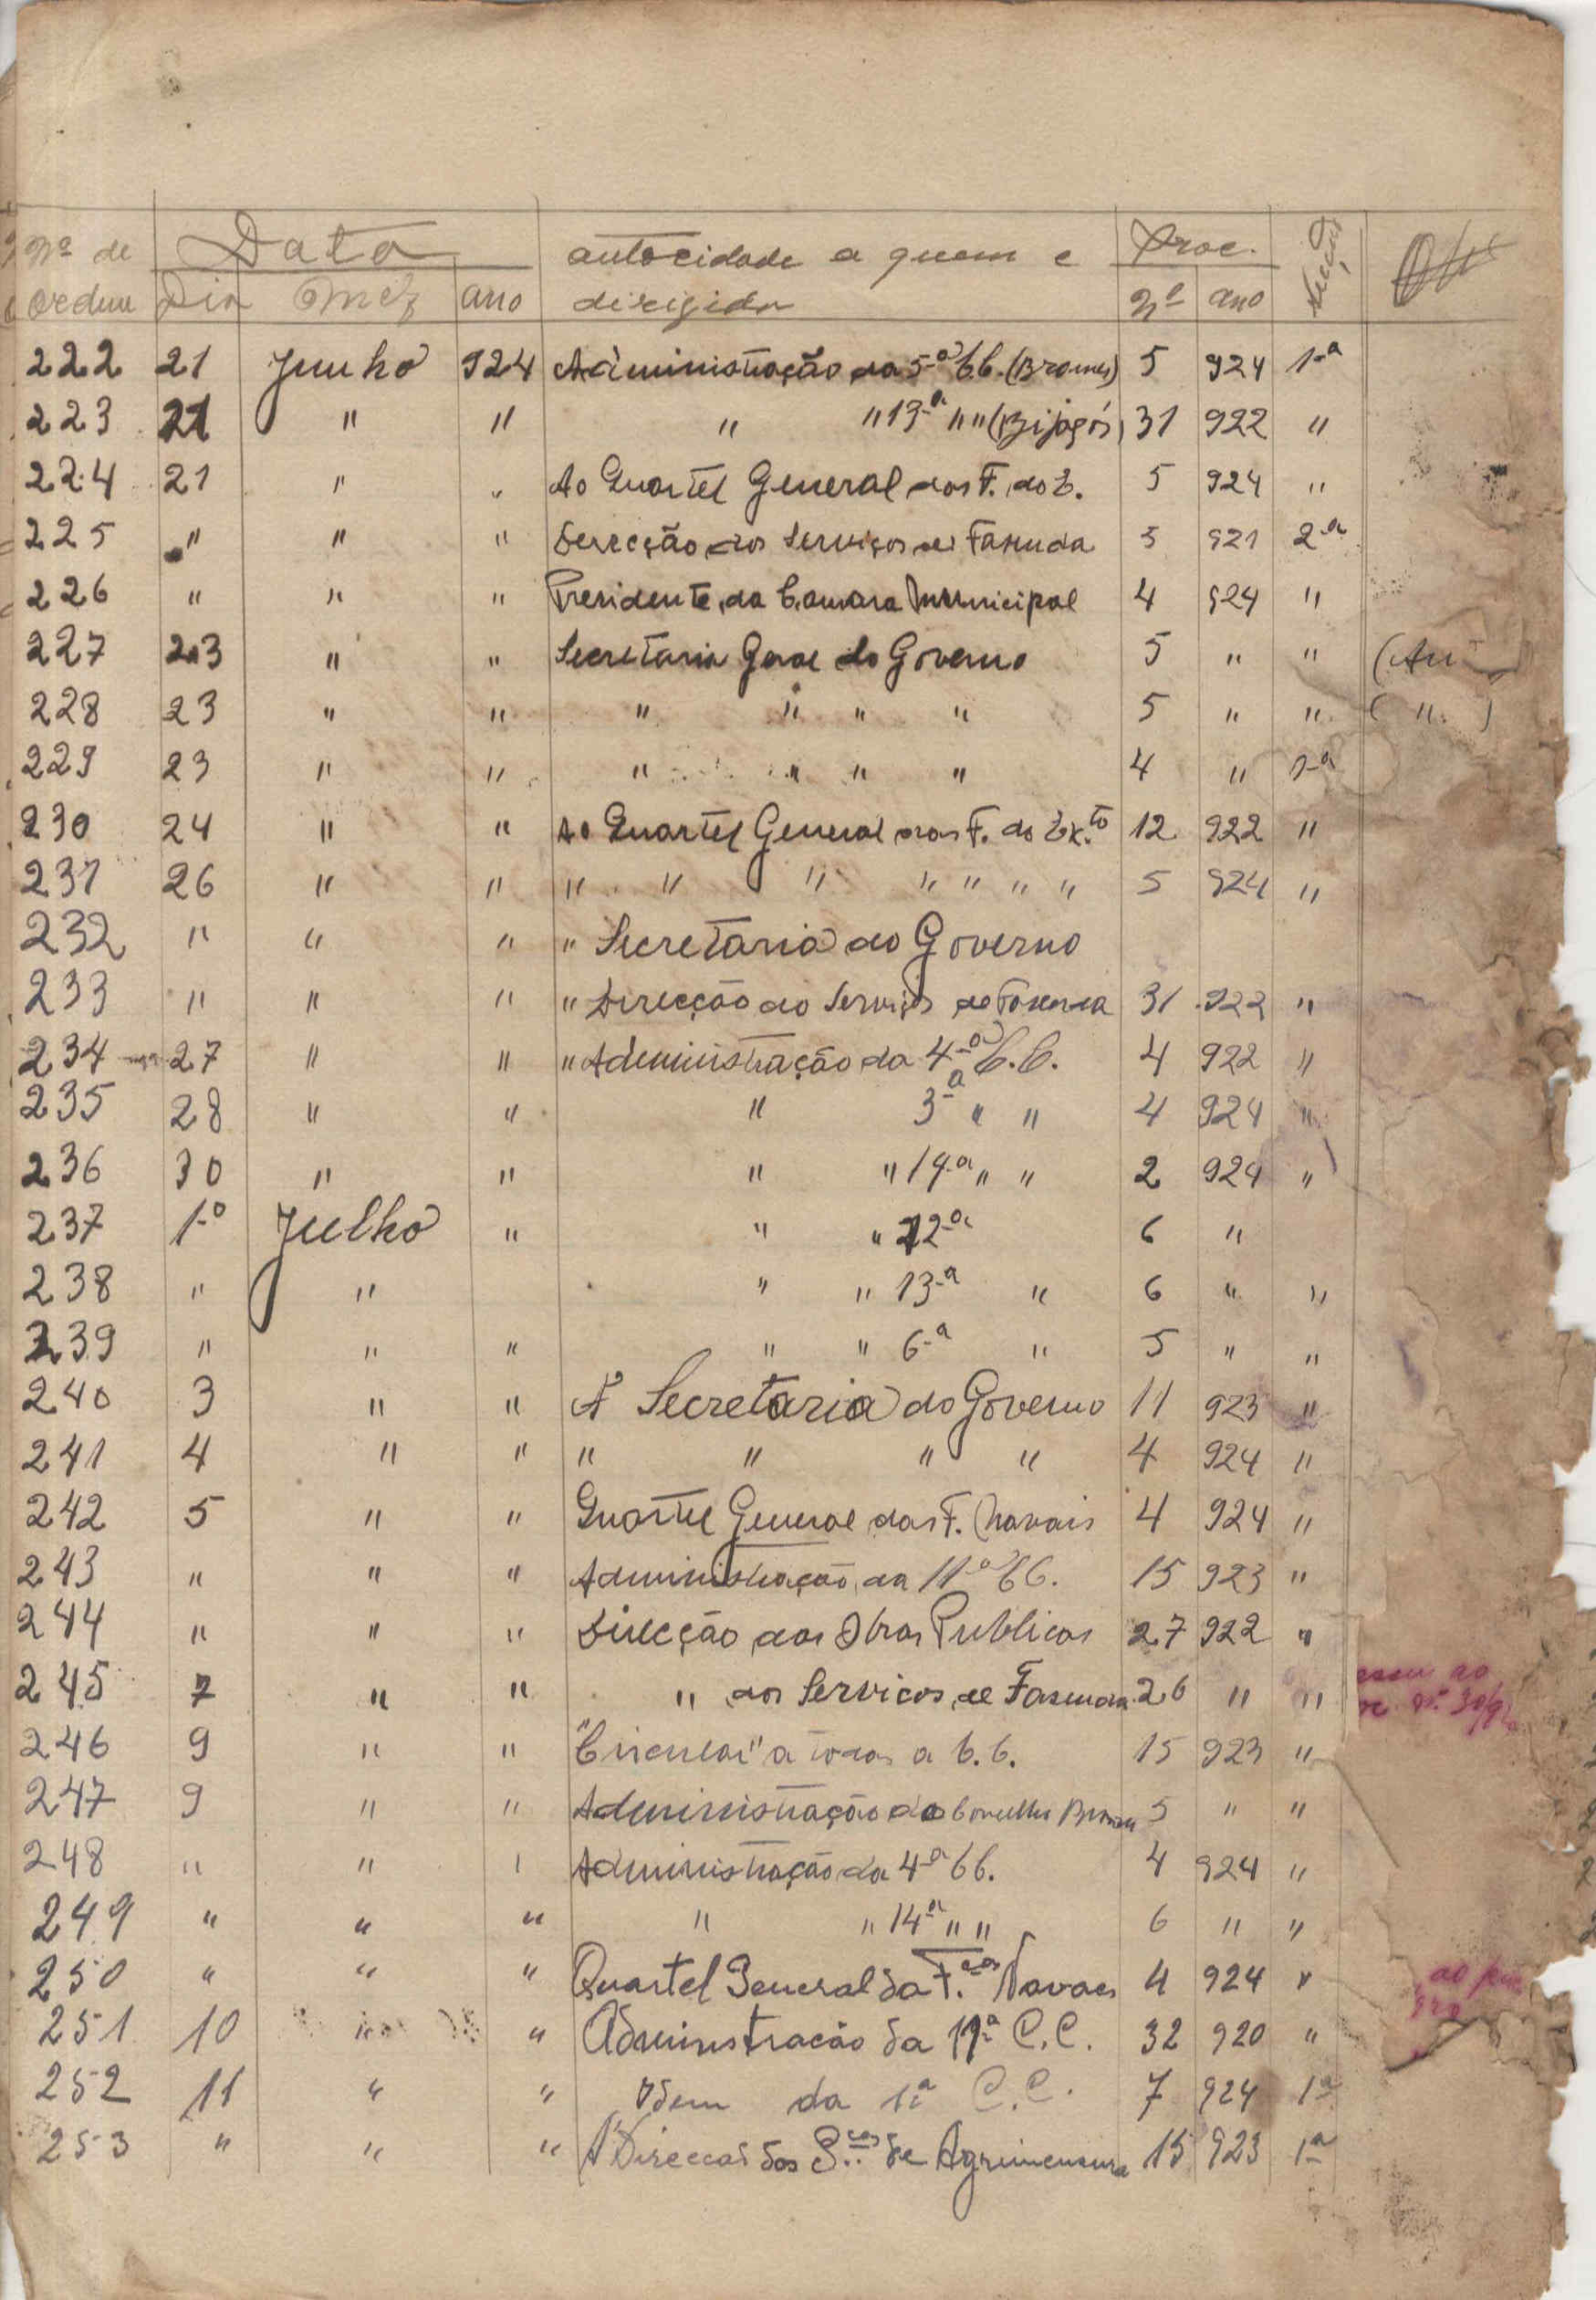 Nº de Data autoridade a quem e Proc.
ordem Dia Mez ano dirigida Nº ano
222 21 Junho 924 Administração da 5-a C.C. (Brames) 5 924 1-a
223 21 " " " " 13-a " " (Bijagós) 31 922 "
224 21 " " Ao Quartel General das F. do E. 5 924 "
225 " " " Direcção dos Serviços de Fazenda 5 921 2-a
226 " " " Presidente da Camara Municipal 4 924 "
227 23 " " Secretaria Geral do Governo 5 " " (
228 23 " " " " " " 5 " " ( " )
229 23 " " " " " " 4 " 1-a
230 24 " " Ao Quartel General das F. do Ex.to 12 922 "
231 26 " " " " " " " " " 5 924 "
232 " " " " Secretaria do Governo
233 " " " " Direcção do Serviços de Fazenda 31 922 "
234 27 " " " Administração da 4-a C.C. 4 922 "
235 28 " " " 3-a " " 4 924 "
236 30 " " " " 14-a " " 2 924 "
237 1-o Julho " " " 12-a 6 "
238 " " " " 13-a " 6 " "
239 " " " " " 6-a " 5 " "
240 3 " " A' Secretaria do Governo 11 923 "
241 4 " " " " " " 4 924 "
242 5 " " Quartel General das F. Navais 4 924 "
243 " " " Administração da 11-a C.C. 15 923 "
244 " " " Direcção das Obras Publicas 27 922 "
245 7 " " " dos Serviços de Fazenda 26 " " ao
246 9 " " "Circular" a todas a C.C. 15 923 "
247 9 " " Administração do Concelho 5 " "
248 " " " Administração da 4-a C.C. 4 924 "
249 " " " " " 14-a " " 6 " "
250 " " " Quartel General da F.ças Navaes 4 924 " ao
251 10 " " Administracão da 11ª C.C. 32 920 "
252 11 " " Idem da 1ª C.C. 7 924 1ª
253 " " " A' Direccaõ dos S.ços de Agrimensura 15 923 1ª